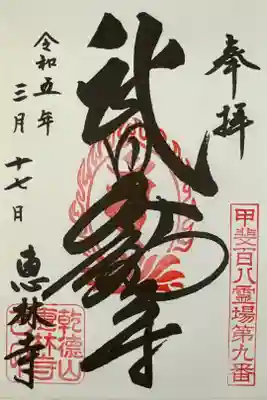 奉拝
甲斐百八霊場第九番
武田不動尊
令和五年
三月十七日
恵林寺
乾徳山
恵林寺